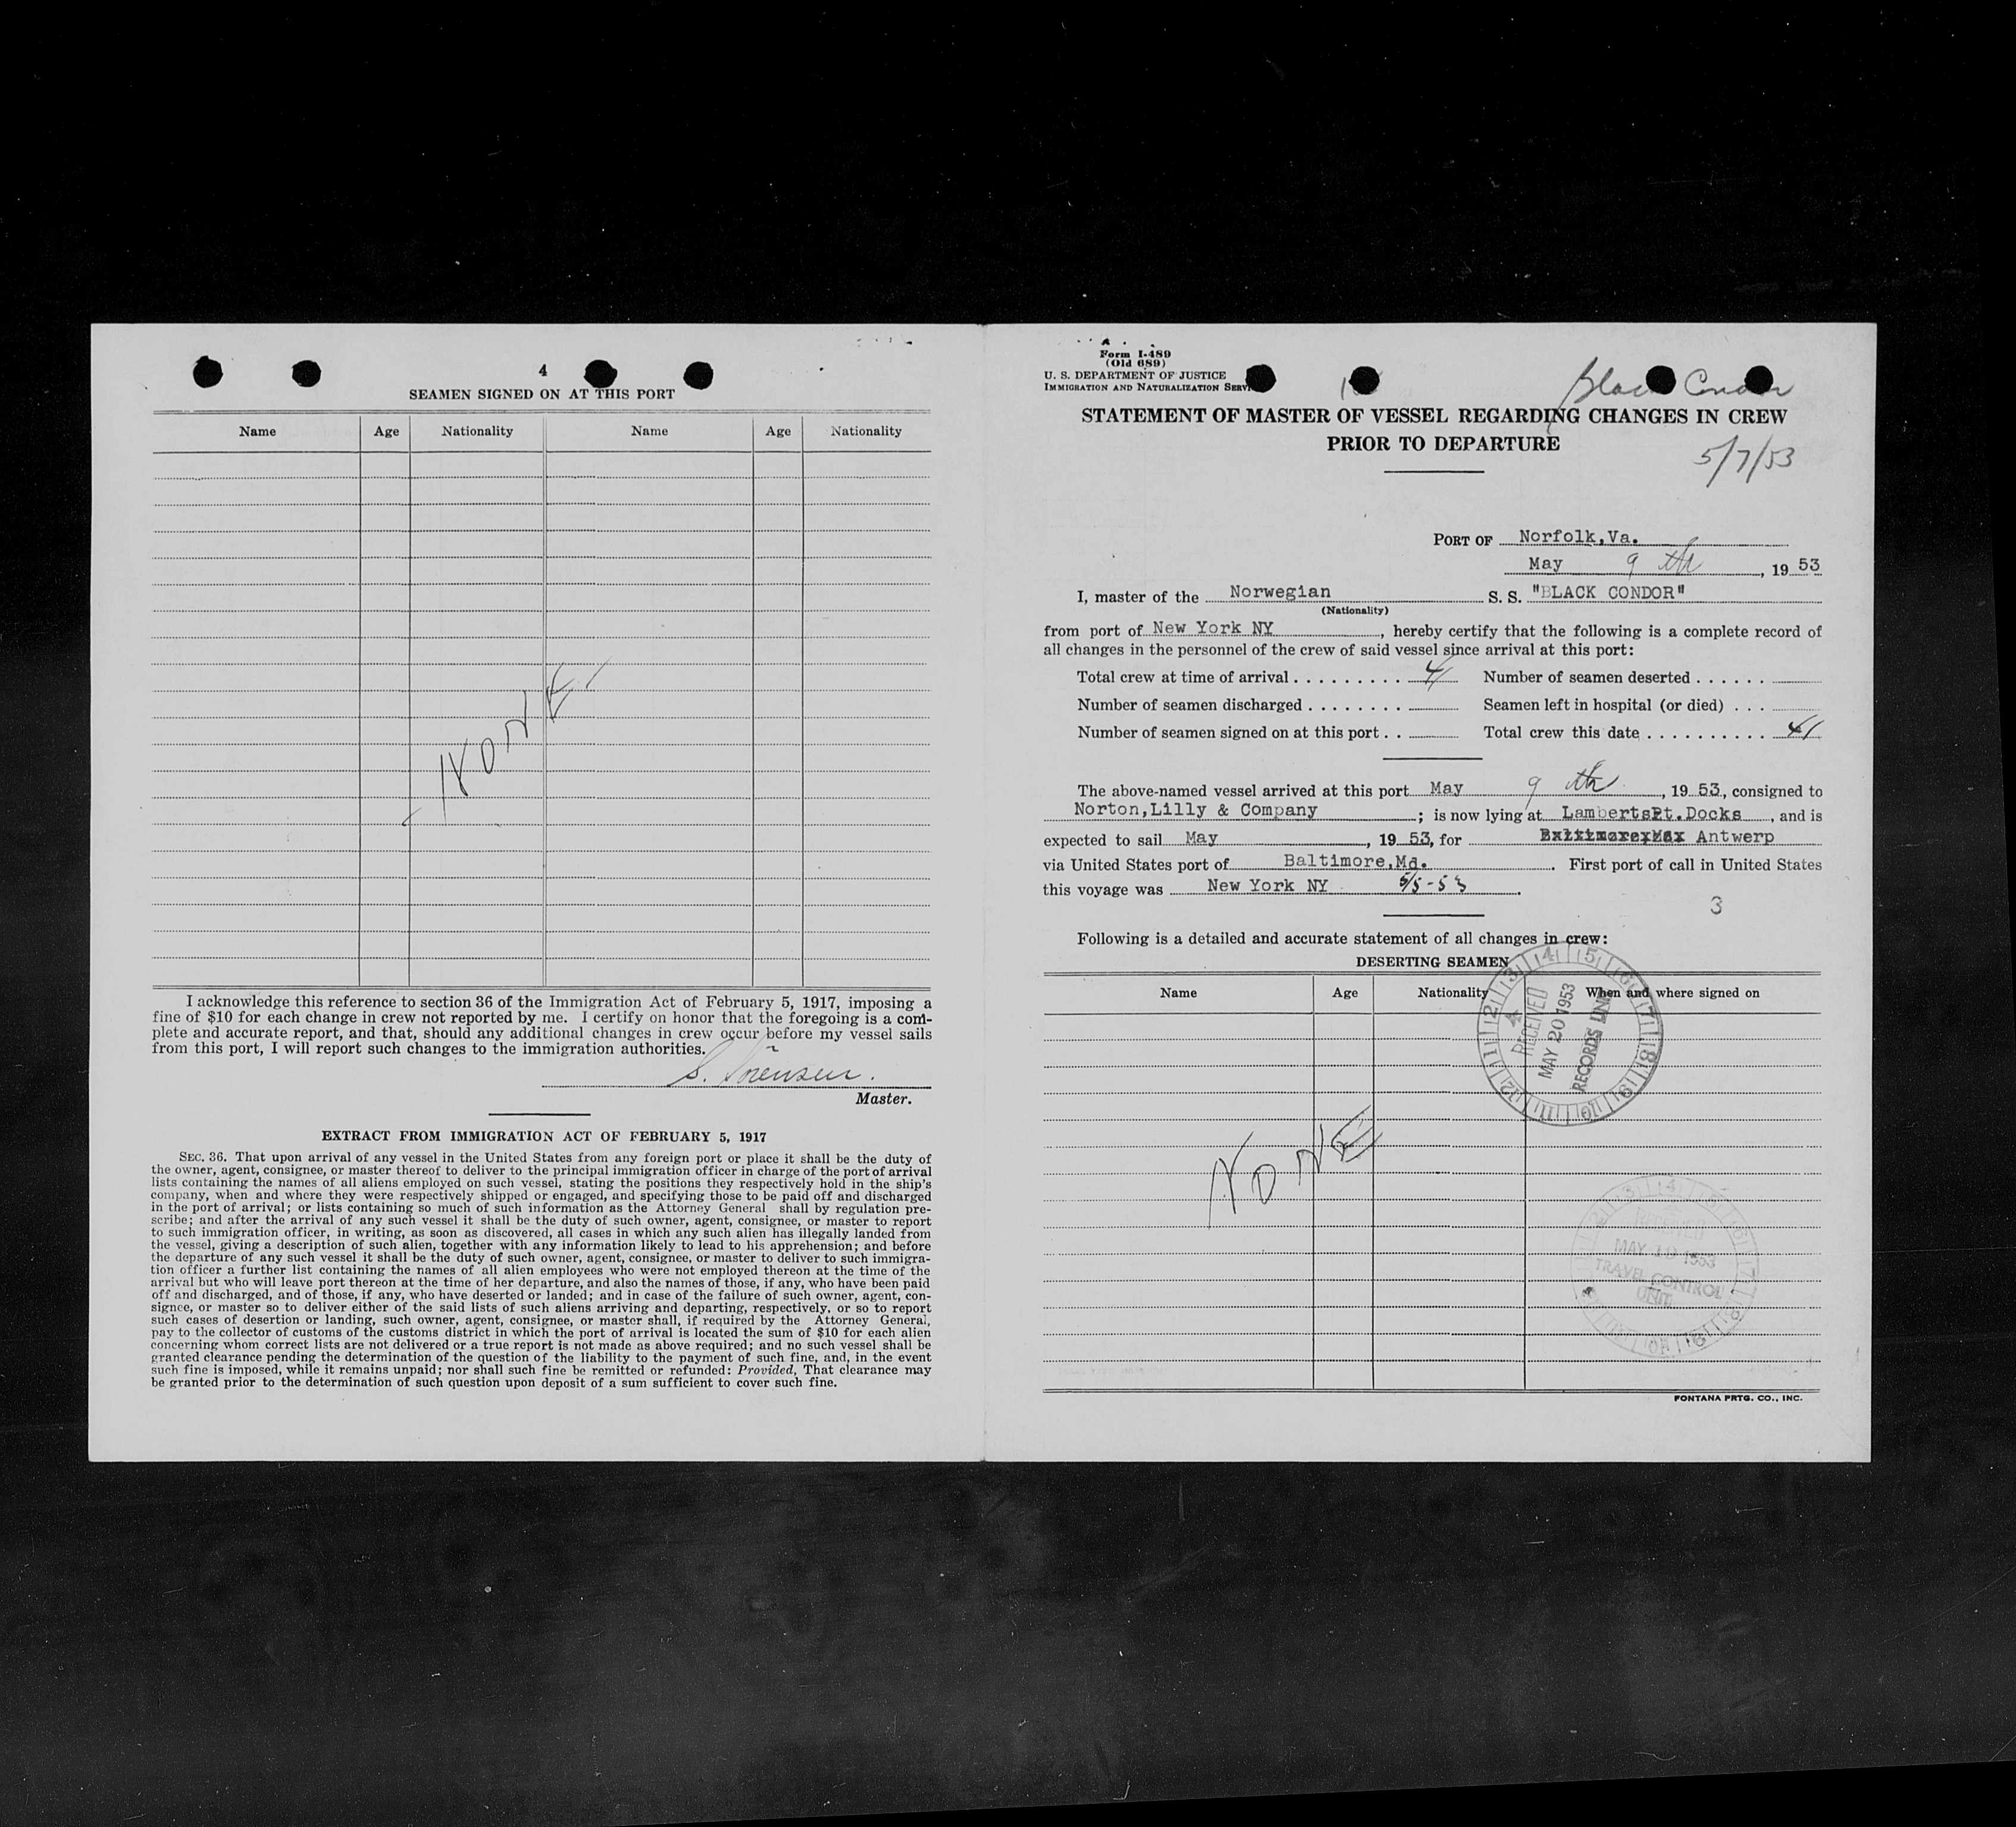 4
SEAMEN SIGNED ON AT THIS PORT
Name Age Nationality Name Age Nationality
NONE
I acknowledge this reference to section 36 of the Immigration Act of February 5, 1917, imposing a
fine of $10 for each change in crew not reported by me. I certify on honor that the foregoing is a com-
plete and accurate report, and that, should any additional changes in crew occur before my vessel sails
from this port, I will report such changes to the immigration authorities.
S. Sörensen.
Master.
EXTRACT FROM IMMIGRATION ACT OF FEBRUARY 5, 1917
SEC. 36. That upon arrival of any vessel in the United States from any foreign port or place it shall be the duty of
the owner, agent, consignee, or master thereof to deliver to the principal immigration officer in charge of the port of arrival
lists containing the names of all aliens employed on such vessel, stating the positions they respectively hold in the ship's
company, when and where they were respectively shipped or engaged, and specifying those to be paid off and discharged
in the port of arrival; or lists containing so much of such information as the Attorney General shall by regulation pre-
scribe; and after the arrival of any such vessel it shall be the duty of such owner, agent, consignee, or master to report
to such immigration officer, in writing, as soon as discovered, all cases in which any such alien has illegally landed from
the vessel, giving a description of such alien, together with any information likely to lead to his apprehension; and before
the departure of any such vessel it shall be the duty of such owner, agent, consignee, or master to deliver to such immigra-
tion officer a further list containing the names of all alien employees who were not employed thereon at the time of the
arrival but who will leave port thereon at the time of her departure, and also the names of those, if any, who have been paid
off and discharged, and of those, if any, who have deserted or landed; and in case of the failure of such owner, agent, con-
signee, or master so to deliver either of the said lists of such aliens arriving and departing, respectively, or so to report
such cases of desertion or landing, such owner, agent, consignee, or master shall, if required by the Attorney General,
pay to the collector of customs of the customs district in which the port of arrival is located the sum of $10 for each alien
concerning whom correct lists are not delivered or a true report is not made as above required; and no such vessel shall be
granted clearance pending the determination of the question of the liability to the payment of such fine, and, in the event
such fine is imposed, while it remains unpaid; nor shall such fine be remitted or refunded: Provided, That clearance may
be granted prior to the determination of such question upon deposit of a sum sufficient to cover such fine.
Form I-489
(Old 689)
U. S. DEPARTMENT OF JUSTICE
IMMIGRATION AND NATURALIZATION SERV
Black Condor
STATEMENT OF MASTER OF VESSEL REGARDING CHANGES IN CREW
PRIOR TO DEPARTURE
5/7/53
PORT OF Norfolk,Va.
May 9 th, 19 53
I, master of the Norwegian S. S. "BLACK CONDOR"
(Nationality)
from port of New York NY, hereby certify that the following is a complete record of
all changes in the personnel of the crew of said vessel since arrival at this port:
Total crew at time of arrival . . . . . . . . . 41 Number of seamen deserted . . . . . .
Number of seamen discharged . . . . . . . . Seamen left in hospital (or died) . . .
Number of seamen signed on at this port . . Total crew this date . . . . . . . . . . 41
The above-named vessel arrived at this port May 9 th, 19 53, consigned to
Norton,Lilly & Company; is now lying at LambertsPt.Docks, and is
expected to sail May, 19 53, for Antwerp
via United States port of Baltimore,Md. First port of call in United States
this voyage was New York NY 5/5-53.
3
Following is a detailed and accurate statement of all changes in crew:
DESERTING SEAMEN
Name Age Nationality When and where signed on
RECEIVED
MAY 20 1953
RECORDS UNIT
NONE
RECEIVED
MAY 19 1953
TRAVEL CONTROL
UNIT
FONTANA PRTG. CO., INC.